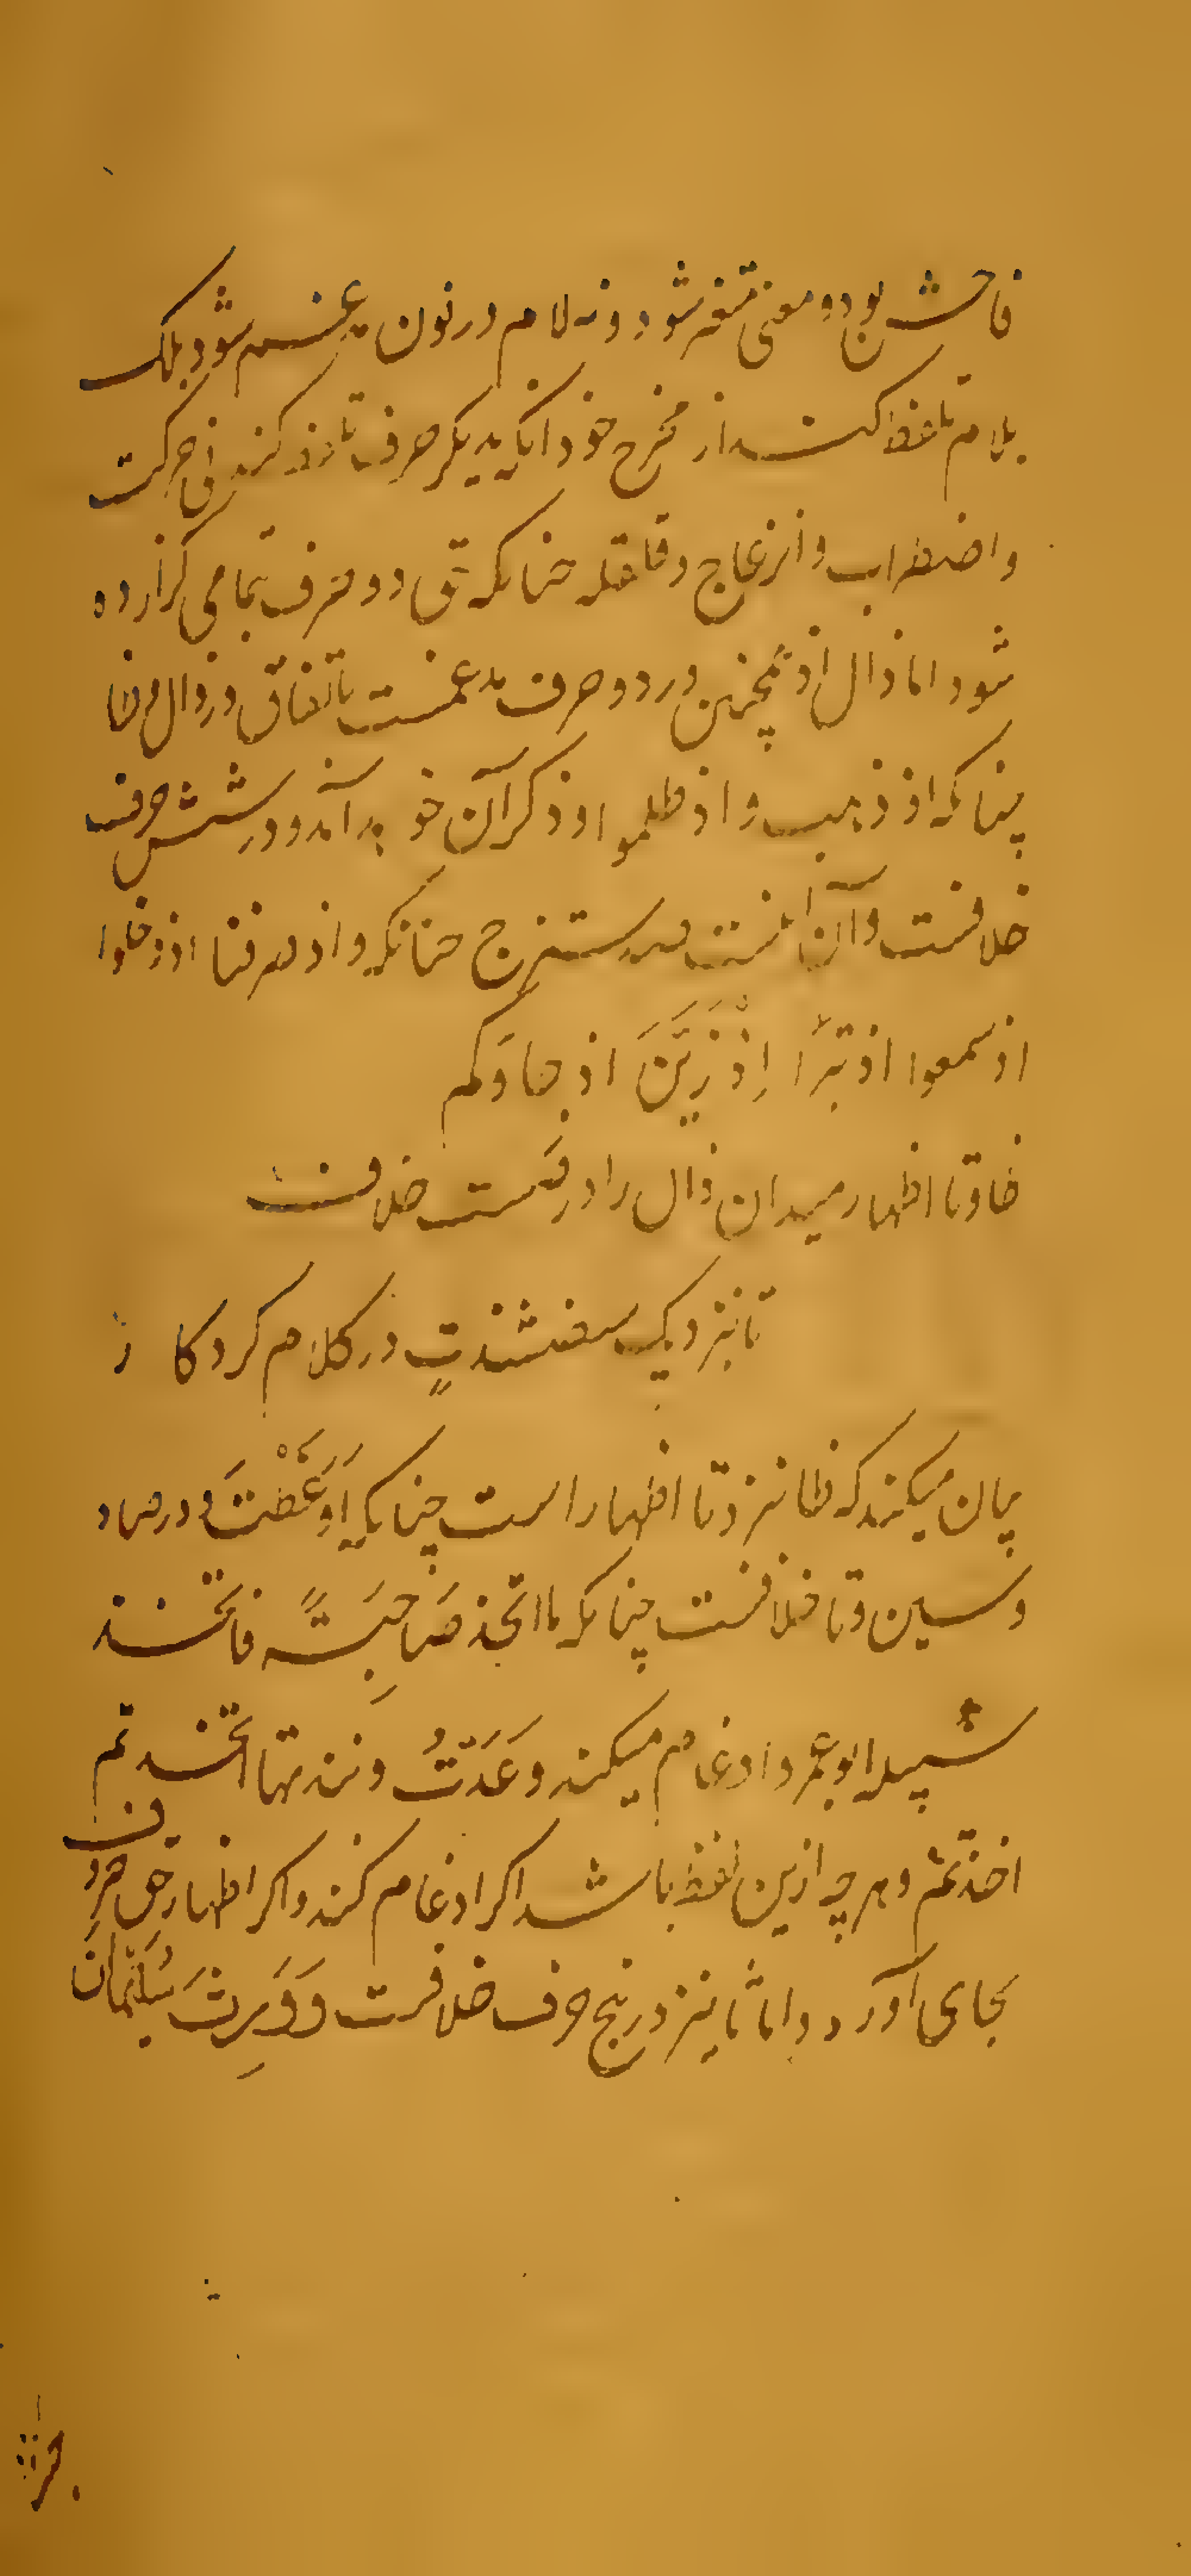 فاحش بود و معنی متغیر شود و نه لام در نون مدغم شود بلک
بلام تلفظ کند از مخرج خود انکه بدیکر حرف تلفظ کند بی حرکت
واضطراب وانزعاج وقلقله چنانکه حق دو حرف بتمامی کزارده
شود اما ذال اذ همچنین در دو حرف مدغمست باتفاق در ذال وظا
چنانکه اذ ذهب و اذ ظلموا و ذکر آن خود آمد و در شش حرف
خلافست وآن اینست صدستزج چنانکه واذ صرفنا اذ دخلوا
اذ سمعوا اذ تبرّا اِذْ زَیَّنَ اذ جاوکم
ظا و تا اظهار میدان ذال را در خلافست
تا بنزدیک در کلام کردکار
بیان میکند که ظا نزد تا اظهار است چنانکه اَوَعَظْتَ و در صاد
وسین وتا خلافست چنانکه ما اتخذ صَاحِبَةً فاتخذ
سبیله ابو عمرو ادغام میکند و عَدَتُّ ونبذتها اتخذتم
اخذتم و هرچه ازین لفظ باشد اکر ادغام کند واکر اظهار حق حروف
بجای آورد و اما ثا نیز در پنج حرف خلافست وَوَرِثَ سُلَیْمَانَ